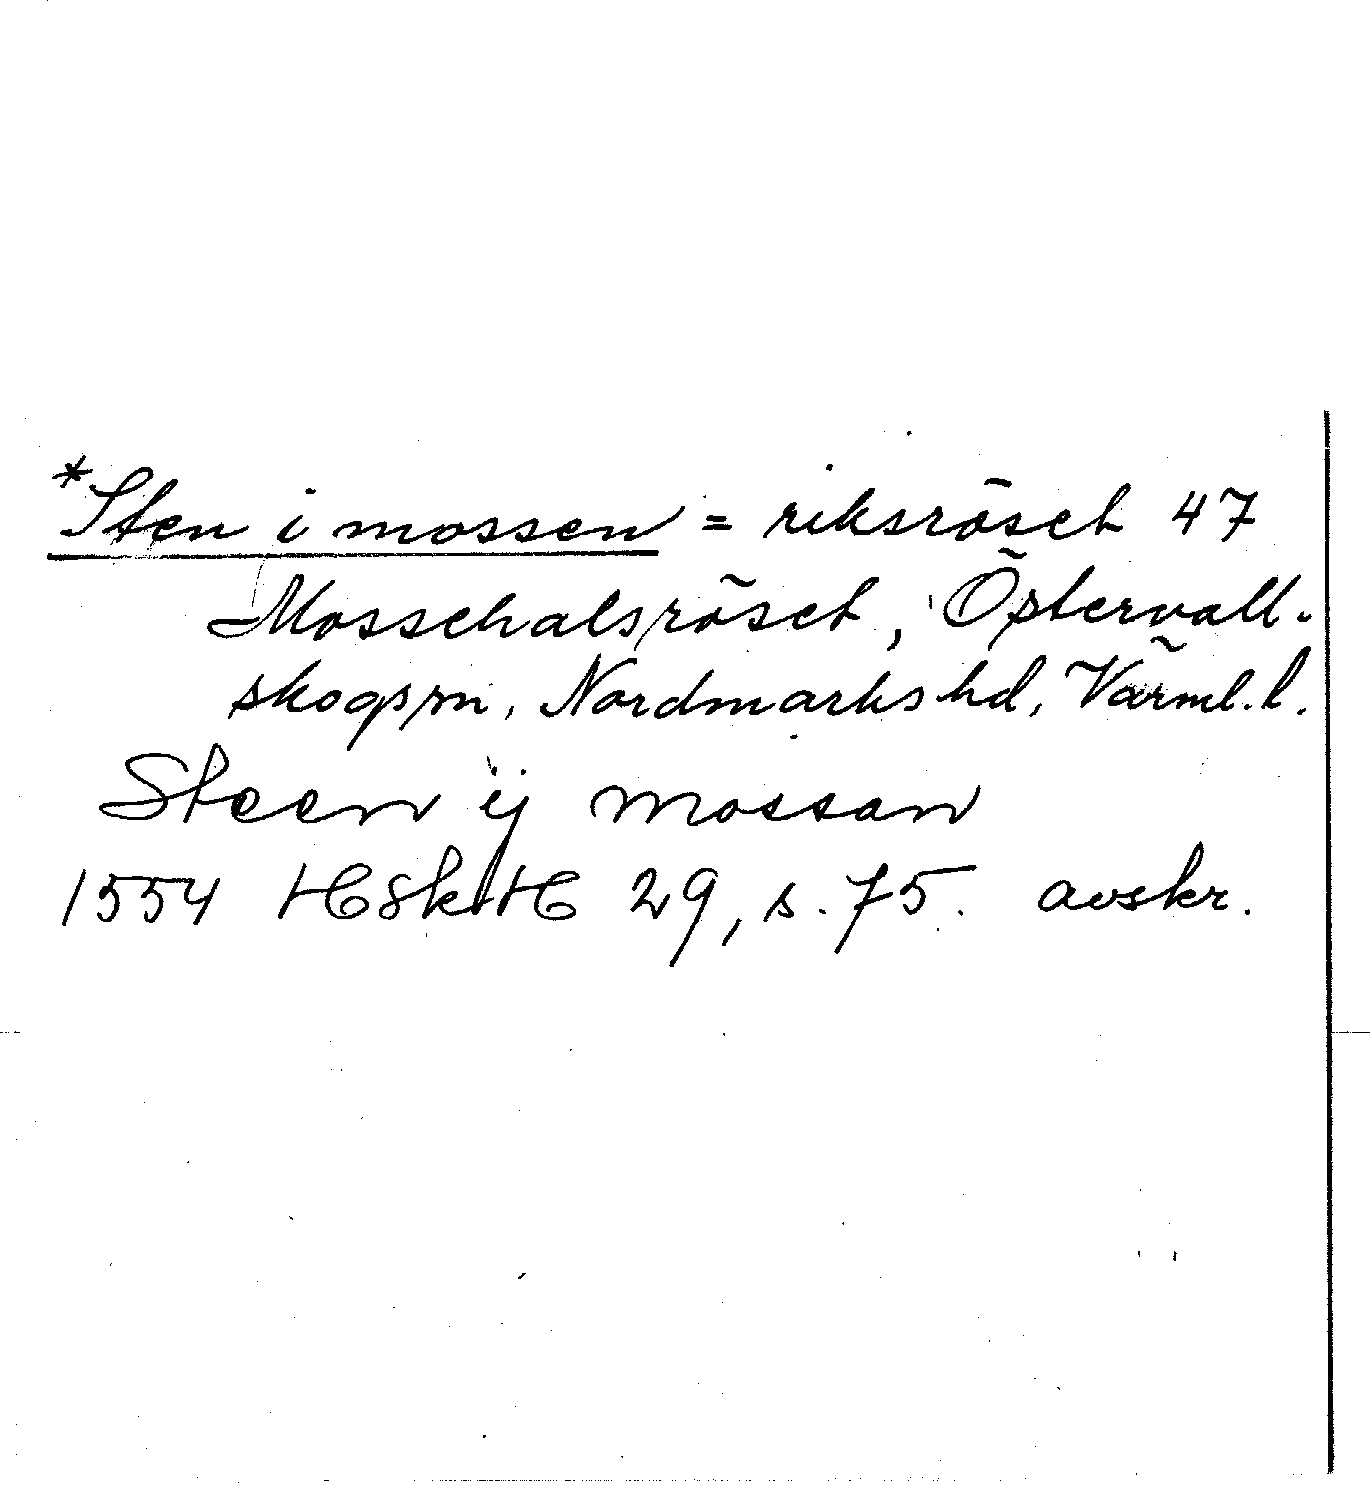 *Sten i mossen = riksröset 47
Mossehalsröset, Östervall-
skogs sn, Nordmarks hd, Värml. l.
Steen ij mossan
1554 HSkH 29, s. 75. avskr.